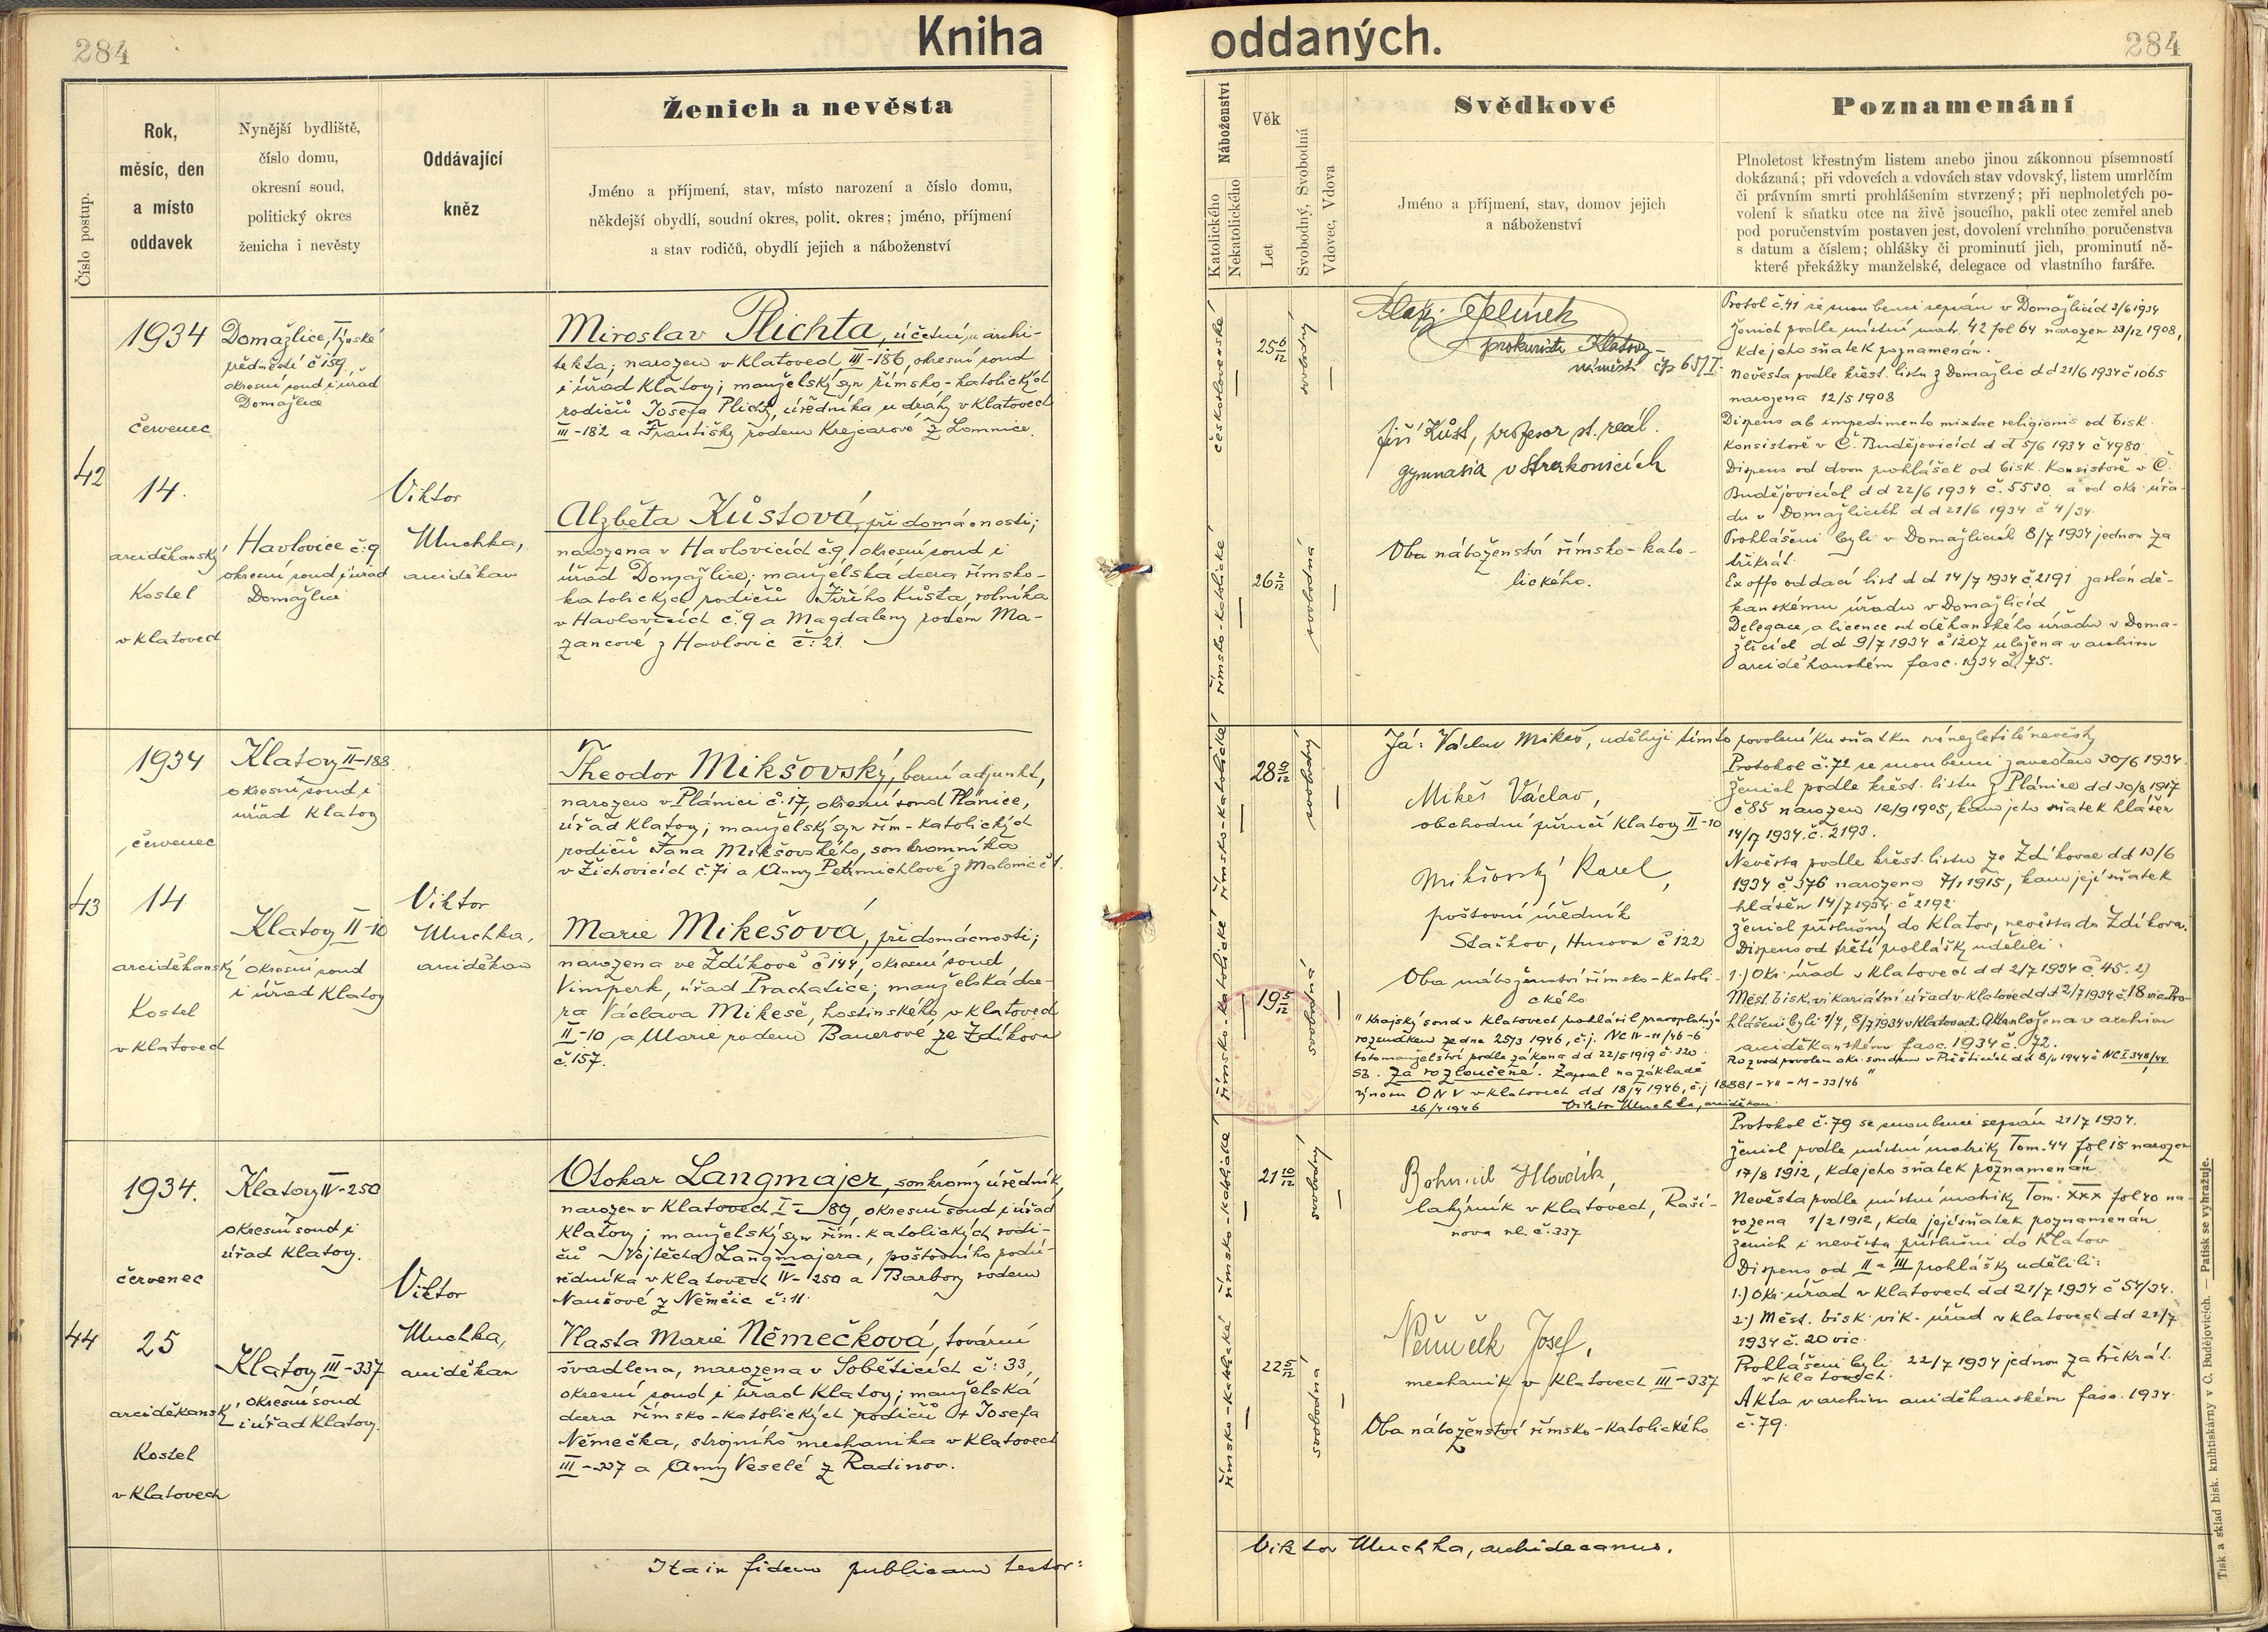 284
Kniha
oddaných.
284
Číslo postup.
Rok,
měsíc, den
a místo
oddavek
Nynější bydliště,
číslo domu,
okresní soud,
politický okres
ženicha i nevěsty
Oddávající
kněz
Ženich a nevěsta
Jméno a příjmení, stav, místo narození a číslo domu,
někdejší obydlí, soudní okres, polit. okres; jméno, příjmení
a stav rodičů, obydlí jejich a náboženství
Náboženství
Katolického
Nekatolického
Věk
Let
Svobodný, Svobodná
Vdovec, Vdova
Svědkové
Jméno a příjmení, stav, domov jejich
a náboženství
Poznamenání
Plnoletost křestným listem anebo jinou zákonnou písemností
dokázaná; při vdovcích a vdovách stav vdovský, listem umrlčím
či právním smrti prohlášením stvrzený; při neplnoletých po-
volení k sňatku otce na živě jsoucího, pakli otec zemřel aneb
pod poručenstvím postaven jest, dovolení vrchního poručenstva
s datum a číslem; ohlášky či prominutí jich, prominutí ně-
které překážky manželské, delegace od vlastního faráře.
42
1934
červenec
14.
arciděkanský
Kostel
v Klatovech
Domažlice, Týnské
předměstí č 159,
okresní soud i úřad
Domažlice
Havlovice č:9
okresní soud i úřad
Domažlice
Viktor
Muchka,
arciděkan
Miroslav Plichta, účetní u archi-
tekta, narozen v Klatovech III-186, okresní soud
i úřad Klatovy; manželský syn římsko-katolických
rodičů Josefa Plichty, úředníka u dráhy v Klatovech
III-182 a Františky rodem Krejcarové z Lomnice.
Alžběta Kůstová, při domácnosti;
narozena v Havlovicích č.9, okresní soud i
úřad Domažlice; manželská dcera římsko-
katolických rodičů Jiřího Kůsta, rolníka
v Havlovicích č.9 a Magdaleny rodem Ma-
zancové z Havlovic č:21.
československé
římsko-katolické
25 6/12
26 2/12
svobodný
svobodná
Jelínek
prokurista Klatovy
náměstí čp 65/I.
Jiří Kůst, profesor st. reál.
gymnasia v Strakonicích
Oba náboženství římsko-kato-
lického.
Protol č.41 se snoubenci sepsán v Domažlicích 3/6 1934
Ženich podle místní matr. 42 fol 64 narozen 23/12 1908,
kde jeho sňatek poznamenán.
Nevěsta podle křest. listu z Domažlic dd 21/6 1934 č 1065
narozena 12/5 1908
Dispens ab impedimento mixtae religionis od bisk.
Konsistoře v Č. Budějovicích d d 5/6 1934 č 4980.
Dispens od dvou prohlášek od bisk. Konsistoře v Č.
Budějovicích d d 22/6 1934 č. 5530 a od okr. úřa-
du v Domažlicích d d 21/6 1934 č 4/34.
Prohlášeni byli v Domažlicích 8/7 1934 jednou za
třikrát.
Ex offo oddací list d d 14/7 1934 č.2191 zaslán dě-
kanskému úřadu v Domažlicích
Delegace, a licence od děkanského úřadu v Doma-
žlicích d d 9/7 1934 č 1207 uložena v archivu
arciděkanském fasc. 1934 č. 75.
43
1934
červenec
14
arciděkanský
Kostel
v Klatovech
Klatovy II-188
okresní soud i
úřad Klatovy
Klatovy II-10
okresní soud
i úřad Klatovy
Viktor
Muchka,
arciděkan
Theodor Mikšovský, berní adjunkt,
narozen v Plánici č.17, okresní soud Plánice,
úřad Klatovy; manželský syn řím-katolických
rodičů Jana Mikšovského, soukromníka
v Žichovicích č.71 a Anny Petrmichlové z Malonic č 1.
Marie Mikešová, při domácnosti;
narozena ve Zdíkově č 144, okresní soud
Vimperk, úřad Prachatice; manželská dce-
ra Václava Mikeše, hostinského v Klatovech
II-10 a Marie rodem Bauerové ze Zdíkova
č.157.
římsko-katolické
římsko-katolické
28 10/12
19 5/12
svobodný
svobodná
Já: Václav Mikeš, uděluji tímto povolení ku sňatku své nezletilé nevěsty
Mikeš Václav,
obchodní příručí Klatovy II-10
Mikšovský Karel,
poštovní úředník
Staňkov, Husova č 122
Oba náboženství římsko-katoli-
ckého
"Krajský soud v Klatovech prohlásil pravoplatným
rozsudkem ze dne 25/3 1946, č.j. NC IV-11/46-6
toto manželství podle zákona dd 22/5 1919 č. 320
sb. za rozloučené. Zapsal na základě
výnosu ONV v Klatovech dd 18/4 1946, č.j 18881-VII-M-33/46"
26/4 1946 Viktor Muchka, arciděkan.
Protokol č.72 se snoubenci zaveden 30/6 1934.
Ženich podle křest. listu z Plánice dd 30/8 1917
č 85 narozen 12/9 1905, kam jeho sňatek hlášen
14/7 1934. č. 2193.
Nevěsta podle křest. listu ze Zdíkova dd 13/6
1934 č 376 narozena 7/1 1915, kam její sňatek
hlášen 14/7 1934 č 2192.
Ženich příslušný do Klatov, nevěsta do Zdíkova.
Dispens od třetí prohlášky udělili:
1.) Okr. úřad v Klatovech dd 2/7 1934 č 45. 2)
Měst. bisk. vikariátní úřad v Klatovech dd 2/7 1934 č. 18 vic. Pro-
hlášeni byli 1/7, 8/7 1934 v Klatovech. Akta uložena v archivu
arciděkanském fasc. 1934 č. 72.
Rozvod povolen okr. soudem v Přešticích dd 8/11 1944 č NC I 348/44
44
1934.
červenec
25
arciděkanský
Kostel
v Klatovech
Klatovy IV-250
okresní soud i
úřad Klatovy.
Klatovy III-337
okresní soud
i úřad Klatovy.
Viktor
Muchka,
arciděkan
Otokar Langmajer, soukromý úředník,
narozen v Klatovech I-89, okresní soud i úřad
Klatovy; manželský syn řím. katolických rodi-
čů Vojtěcha Langmajera, poštovního podú-
ředníka v Klatovech IV-250 a Barbory rodem
Naušové z Němčic č:11.
Vlasta Marie Němečková, tovární
švadlena, narozena v Soběticích č:33,
okresní soud i úřad Klatovy; manželská
dcera římsko-katolických rodičů + Josefa
Němečka, strojního mechanika v Klatovech
III-337 a Anny Veselé z Radinov.
římsko-katolické
římsko-katolické
21 10/12
22 5/12
svobodný
svobodná
Bohumil Hlovdík,
lakýrník v Klatovech, Raší-
nova ul. č.337
Němeček Josef,
mechanik v Klatovech III-337
Oba náboženství římsko-katolického
Protokol č.79 se snoubenci sepsán 21/7 1934.
Ženich podle místní matriky Tom. 44 fol 15 narozen
17/8 1912, kde jeho sňatek poznamenán.
Nevěsta podle místní matriky Tom. XXX fol 40 na-
rozena 1/2 1912, kde její sňatek poznamenán
Ženich i nevěsta příslušni do Klatov
Dispens od II a III prohlášky udělili:
1.) Okr. úřad v Klatovech dd 21/7 1934 č 54/34.
2.) Měst. bisk. vik. úřad v Klatovech dd 21/7
1934 č. 20 vic.
Prohlášeni byli 22/7 1934 jednou za třikrát.
v Klatovech.
Akta v archivu arciděkanském fasc. 1934
č.79.
Ita in fidem publicam testor:
Viktor Muchka, archidecanus.
Tisk a sklad bisk. knihtiskárny v Č. Budějovicích. — Patisk se vyhražuje.